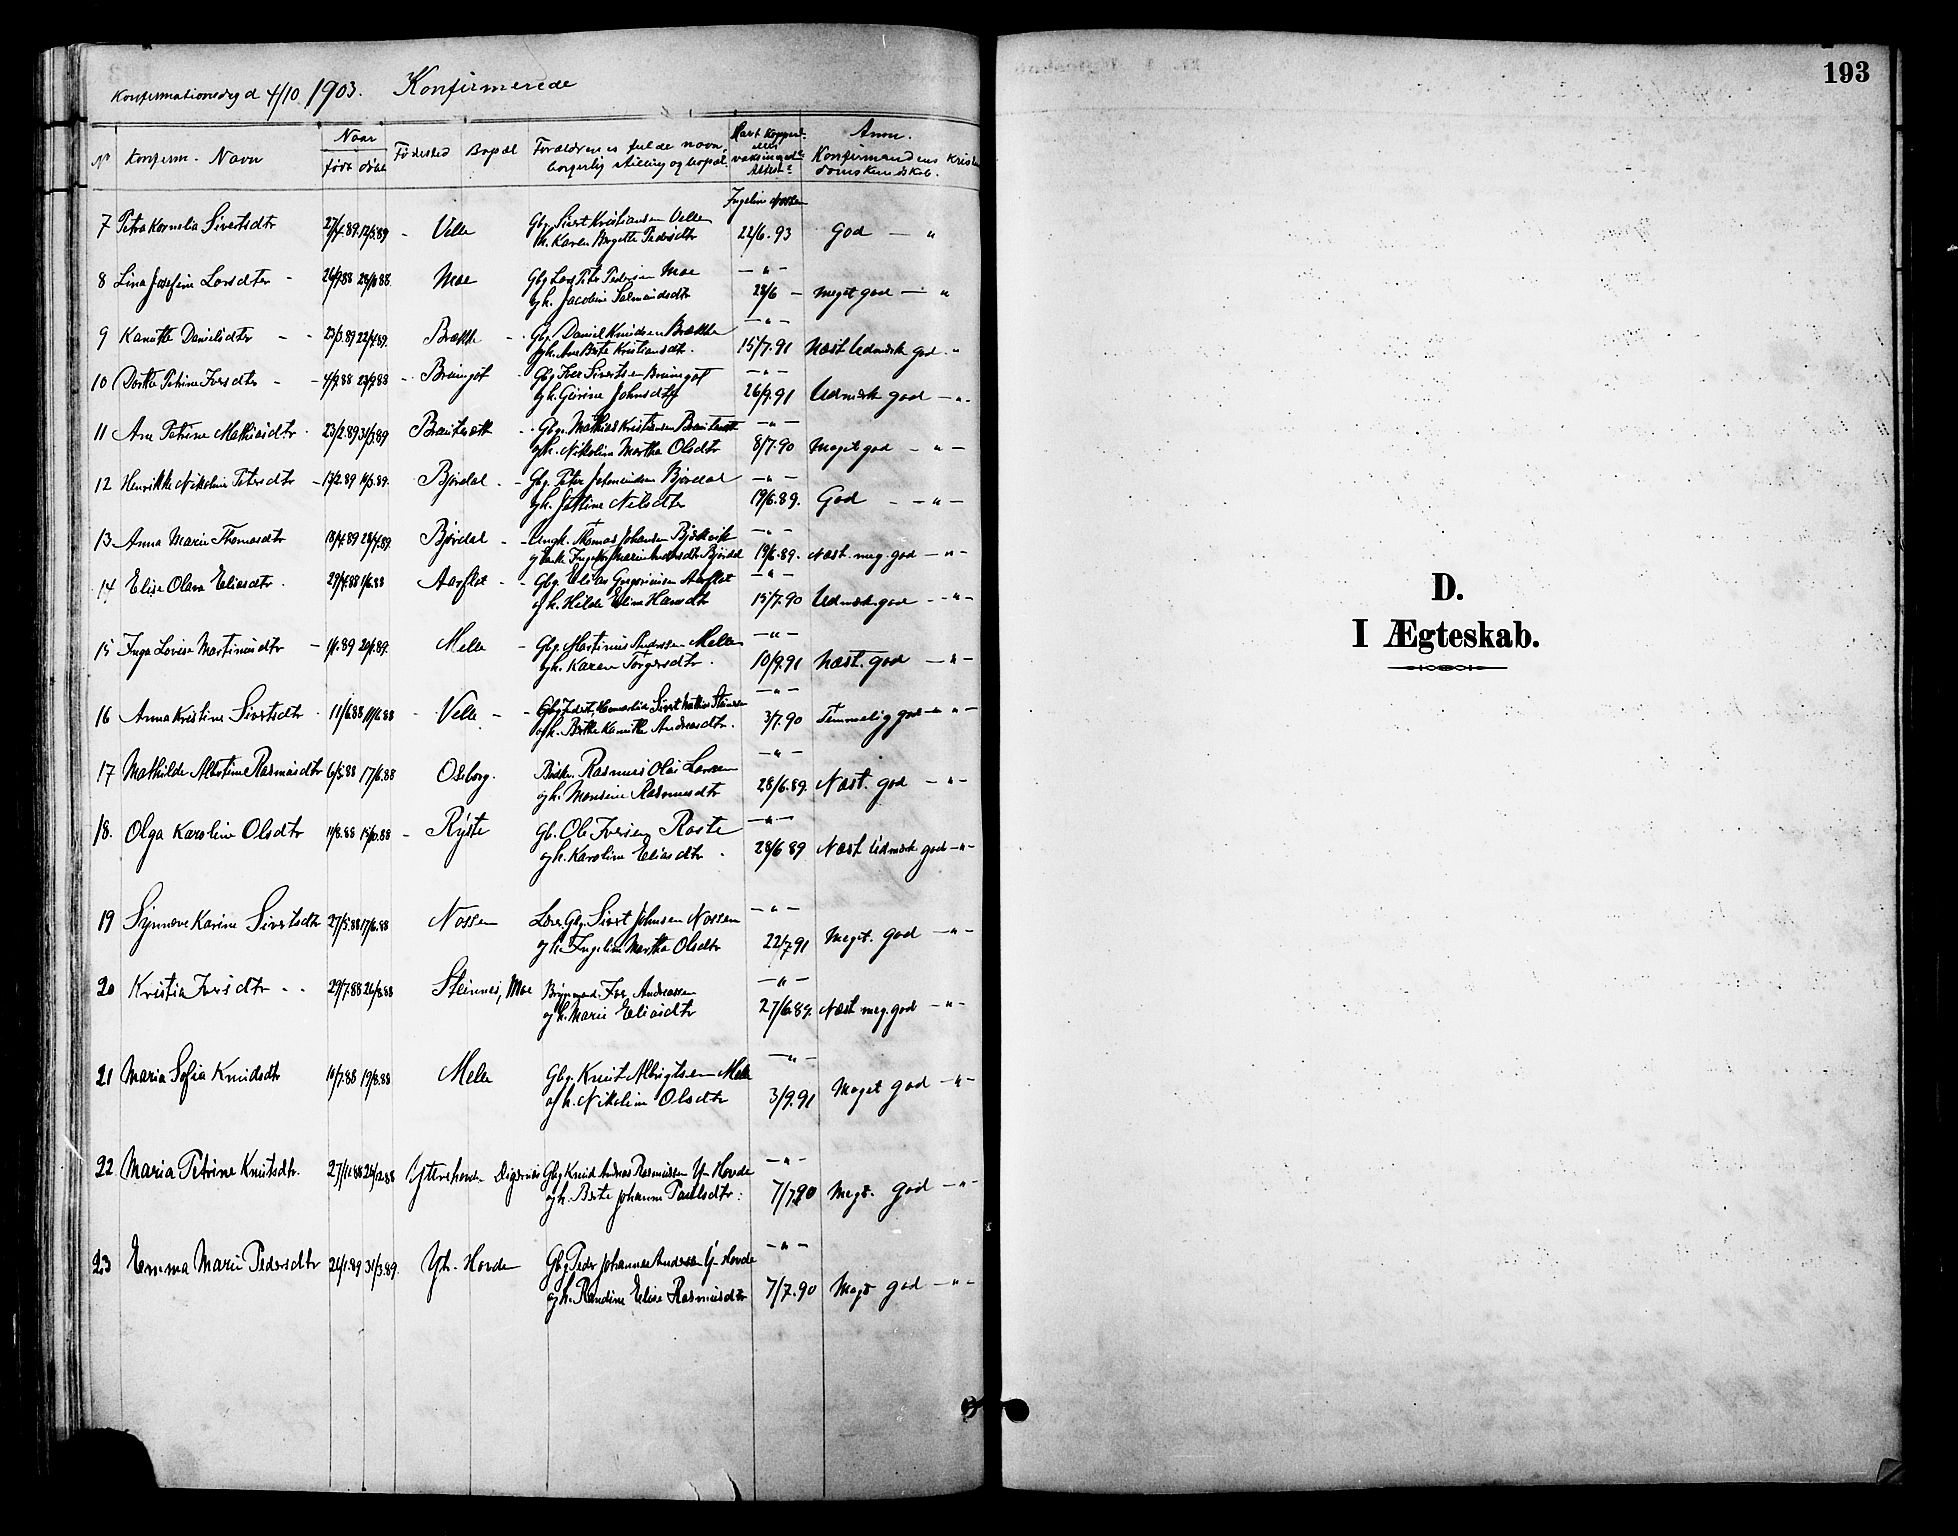 Konfirmationsdag d 4/10. 1903. Konfirmerede
No Konfirm. Navn Naar født døbt Fødested Bopæl Forældrenes fulde navn, borgerlig stilling og bopæl. Havt kopper eller vaksineret Attest Anm. Konfirmandens Kristendomskundskab.
7 Petra Kornelia Sivertsdtr 27/4.89 12/5.89 - Velle Gbg. Sivert Kristiansen Velle 22/6.93 God - "
og h. Karen Birgitte Pedersdtr
8 Lina Josefine Larsdtr - 26/9.88 28/10.88 Moe Gbg Lars Peter Pedersen Moe - " -
og h. Jacobine Salomonsdtr 28/6 - Meget god - "
9 Kanutte Danielsdtr - - 23/3.89 22/4.89. Brække - Gbg. Daniel Knudsen Brække - " -
og h. Ane Berte Kristiansdtr. 15/7.91 Næst Udmærk god. "
10 Dorthe Petrine Iversdtr - - 4/9.88 23/9.88 - Brungot - Gbg Iver Sivertsen Brungot - " -
og h. Gurine Johnsdtr 26/9.91 Udmærk god - " -
11 Ane Petrine Mathiasdtr. 23/2.89 31/3.89 - Gbg. Mathias Kristiansen - " -
og h. Nikoline Martha Olsdtr 8/7.90 Meget god - " -
12 Henrikke Nikoline Petersdtr - 17/2.89 11/3.89. Bjørdal - Gbg. Peter Bjørdal - " -
og h. Jettine Nilsdtr 19/6.89. God - - " -
13. Anna Marie Thomasdtr 18/4.89 28/4.89. Bjørdal - Ungk. Thomas Johansen - " -
19/6.89. Næst. meg. god - " -
14 Elise Olava Eliasdtr. 29/4.88 1/6.88 Aarflot - Gbg. Elias Gregoriusen Aarflot - " -
og h. Hilde Eline Hansdtr 15/7.90 Udmærk. god - " -
15 Inga Lovise Martinusdtr - 1/1.89 20/1.89. Melle - Gbg. Martinus Andersen Melle - " -
og h. Karen Torgersdtr. 10/9.91 Næst. god - " -
16 Anna Kristine Sivertsdtr. 11/6.88 11/6.88 - Velle - - Sivert Mathias - " -
og h. Berthe Kanutte Andreasdtr. 3/7.90 Temmelig god - " -
17 Mathilde Albertine Rasmusdtr 6/5.88 17/6.88 Osborg. Rasmus Olai Larsen - " -
og h. Monsine Rasmusdtr 28/6.89. Næst. god - " -
18. Olga Karoline Olsdtr 11/8.88 15/10.88 - Ryste Gb. Ole Iversen Røste - " -
og h. Karoline Eliasdtr. 28/6 89 Næst Udmærk god - " -
19 Synnøve Karine Sivertsdtr 27/5.88 17/6.88 Nossen Lærer. Gbg. Sivert Johnsen Nossen - " -
og h. Ingeline Martha Olsdtr 22/7.91 Meget. god - " -
20 Kristia Iversdtr. - - 29/7.88 26/8.88 Steinnes, Moe Iver Andreassen - " -
og h. Marie Eliasdtr 27/6.89. Næst meg. god - " -
21 Maria Sofia Knudsdtr 10/7.88 19/8.88 Melle Gbg. Knut Albrigtsen Melle - " -
og h. Nikoline Olsdtr 3/9.91 Meget god - " -
22. Maria Petrine Knutsdtr. 27/11.88 26/12.88 Ytterhovde Digernes Gbg Knud Andreas Rasmussen Y-Hovde - " -
og h. Berte Johanne Paulsdtr. 7/7.90 Meget. god - " -
23 Emma Marie Pedersdtr 26/1.89 31/3.89. Ytr. Hovde Gbg. Peder Johannes Andersen Y-Hovde - " -
og h. Randine Elise Rasmusdtr 7/7.90 Meget god - " -
193
D.
I Ægteskab.